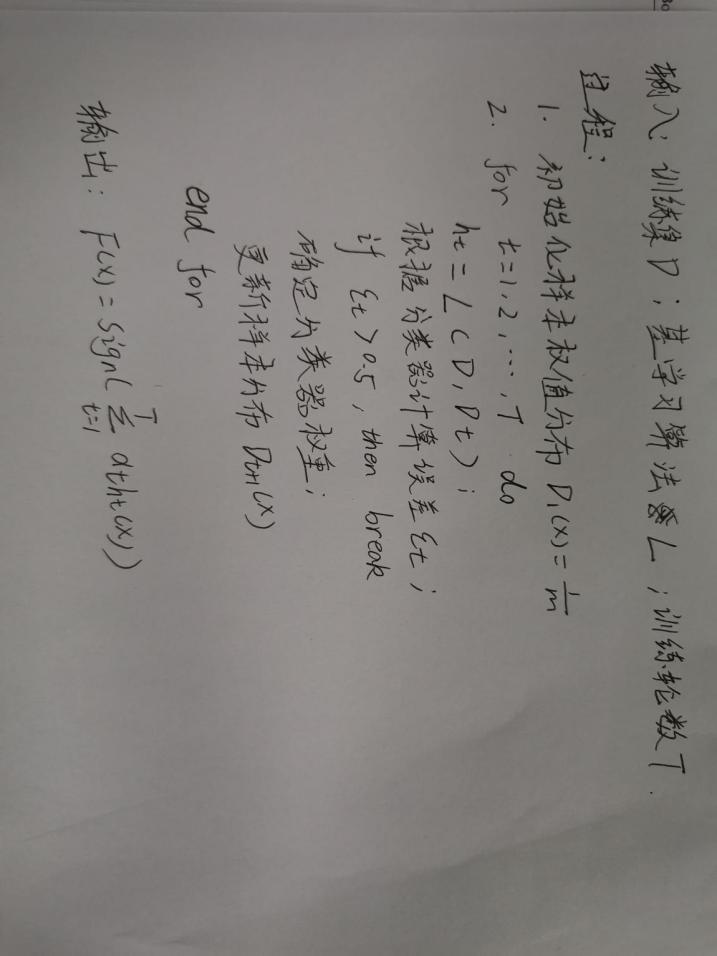 输入: 训练集D; 基学习算法L; 训练轮数T.
过程:
1. 初始化样本权值分布 D₁(x) = 1/m
2. for t=1,2,...,T do
ht = L(D, Dt);
根据分类器计算误差εt;
if εt > 0.5, then break
确定分类器权重;
更新样本分布 Dt+1(x)
end for
输出: F(x) = sign(∑_{t=1}^{T} αtht(x))